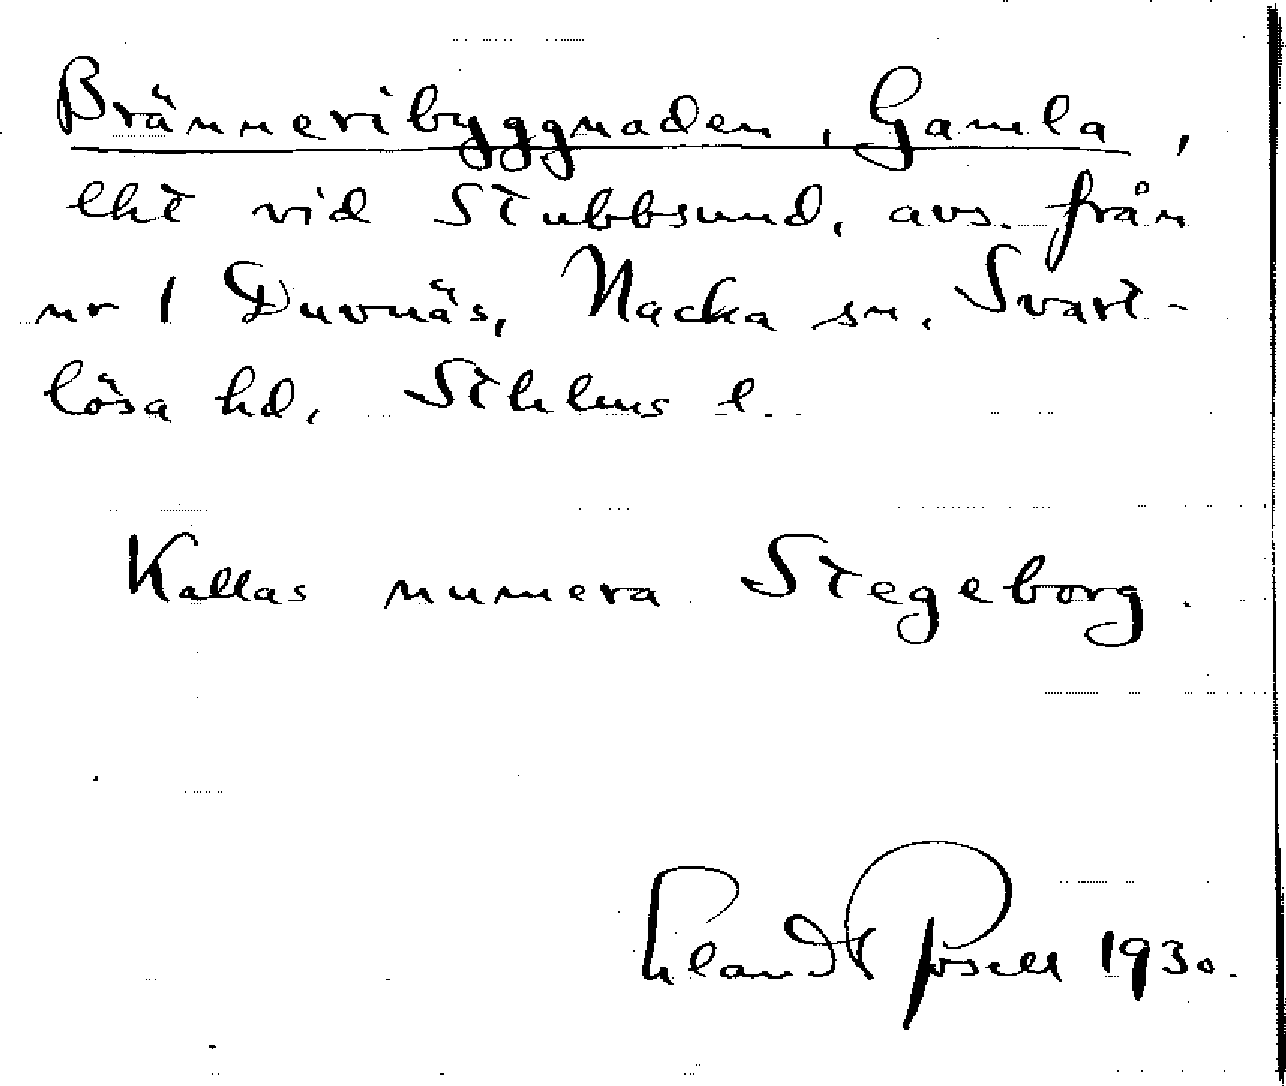 Bränneribyggnaden, Gamla,
lht vid Stubbsund, avs. från
nr 1 Duvnäs, Nacka sn, Svart-
lösa hd, Sthlms l.
Kallas numera Stegeborg.
Erlandt Rosell 1930.